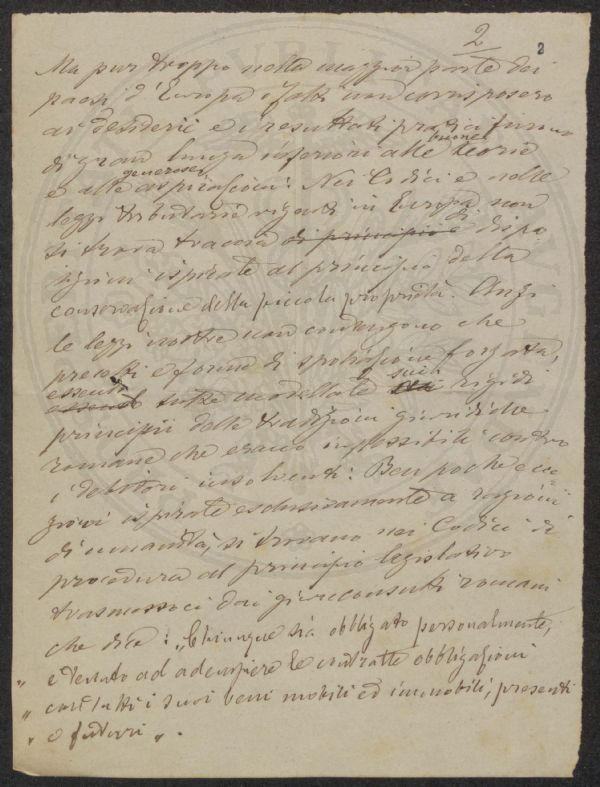 2
2
Ma pur troppo nella maggior parte dei
paesi d'Europa i fatti non corrisposero
ai desiderii e i resultati pratici furono
di gran lunga inferiori alle buone teorie
e alle generose aspirazioni. Nei Codici e nelle
leggi tributarie vigenti in Europa non
si trova traccia di principio e di dispo
sizioni ispirate al principio della
conservazione della piccola proprietà. Anzi
le leggi nostre non contengono che
precetti e forme di spoliazione forzata,
essendo tutte modellate sui rigidi
principii delle tradizioni giuridiche
romane che erano impossibili contro
i debitori insolventi. Ben poche ecce
zioni ispirate esclusivamente a ragioni
di umanità, si trovano nei Codici di
procedura al principio legislativo
trasmessoci dai giureconsulti romani
che dice: „Chiunque sia obbligato personalmente,
„ è tenuto ad adempiere le contratte obbligazioni
„ con tutti i suoi beni mobili ed immobili, presenti
„ e futuri „.